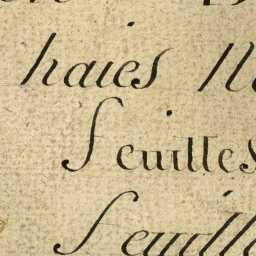 haies
feuilles
feuill